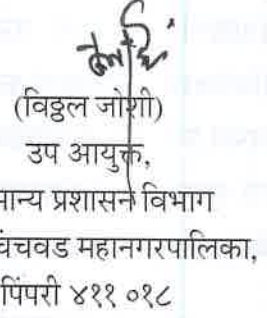 (विठ्ठल जोशी)
उप आयुक्त,
मान्य प्रशासन विभाग
चिंचवड महानगरपालिका,
पिंपरी ४११ ०१८